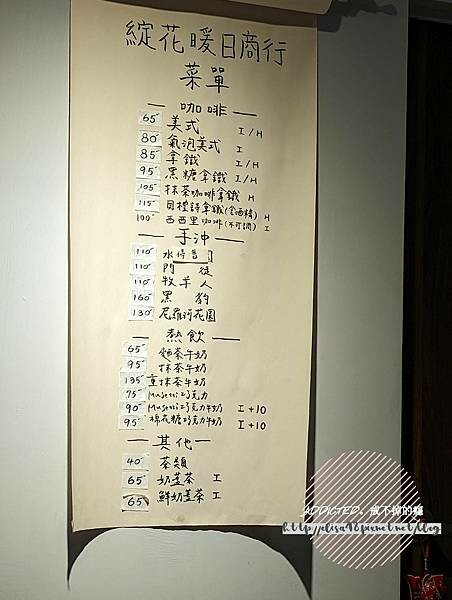 綻花暖日商行
菜單
咖啡
65 美式 I/H
80 氣泡美式 I
85 拿鐵 I/H
95 黑糖拿鐵 I/H
105 抹茶咖啡拿鐵 H
115 貝禮詩拿鐵(含酒精) H
100 西西里咖啡(不可調) I
手沖
110 水
110 門徒
110 牧羊人
160 黑狗
130 尼羅河花園
熱飲
65 麵茶牛奶
95 抹茶牛奶
135 重抹茶牛奶
75 Musetti巧克力
90 Musetti巧克力牛奶 I+10
95 棉花糖巧克力牛奶 I+10
其他
40 茶類
65 奶蓋茶 I
65 鮮奶蓋茶 I
ADDICTED、戒不掉的癮
http://elisa98.pixnet.net/blog